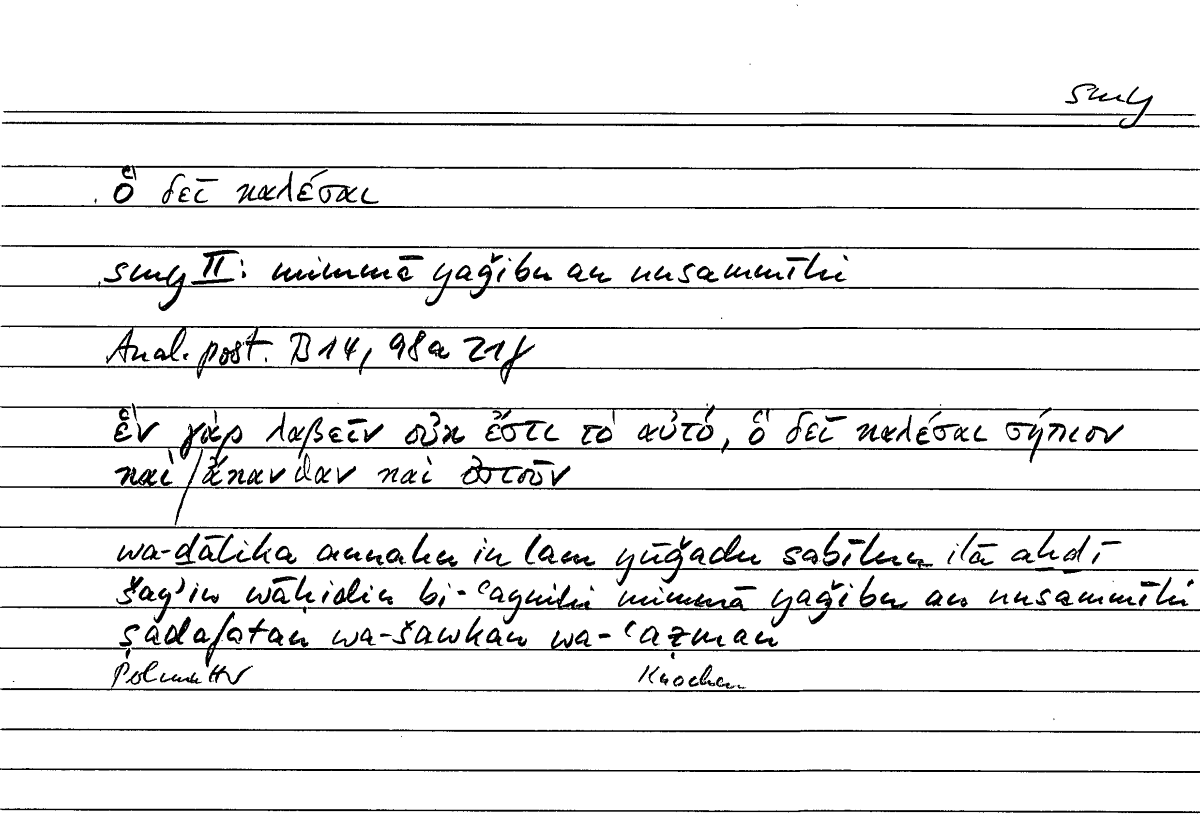 smy
ὃ δεῖ καλέσαι
smy II: mimmā yaǧibu an nusammīhi
Anal. post. B14, 98a 21f
ἓν γὰρ λαβεῖν οὐκ ἔστι τὸ αὐτό, ὃ δεῖ καλέσαι σήπιον
καὶ / ἄκανθαν καὶ ὀστοῦν
wa-ḏālika annahu in lam yūǧadu sabīlun ilā aḫḏī
šay'in wāḥidin bi-ʿaynihi mimmā yaǧibu an nusammīhi
ṣadafatan wa-šawkan wa-ʿaẓman
Knochen